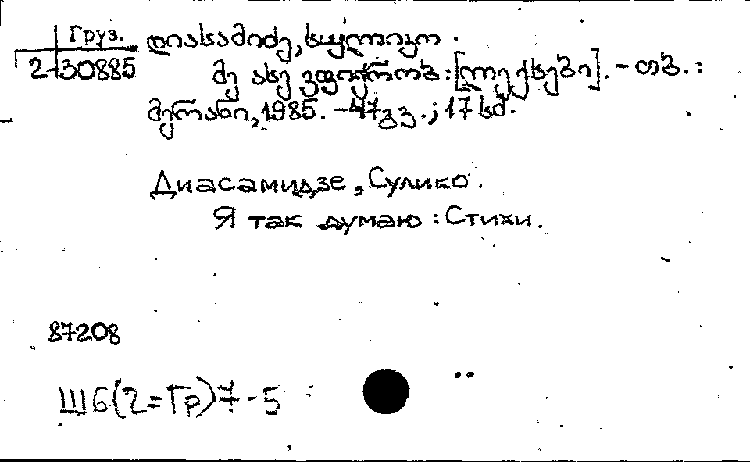 Груз.
2-30885
დიასამიძე, სულიკო.
მე ასე ვფიქრობ: [ლექსები]. - თბ.:
მერანი, 1985. - 47 გვ.; 17 სმ.
Диасамидзе, Сулико.
Я так думаю: Стихи.
87208
Ш6(2=Гр)7-5